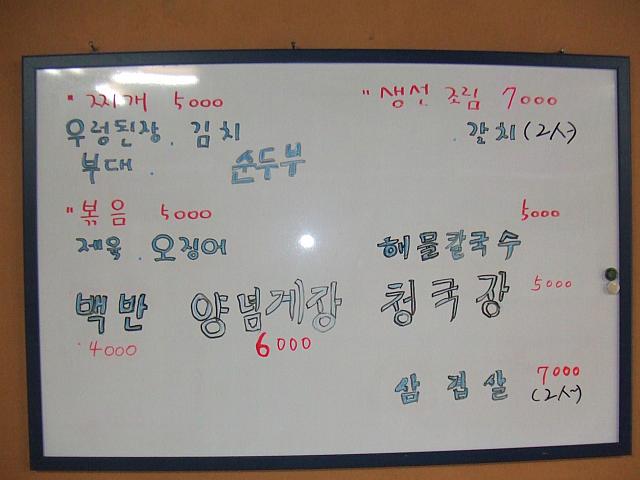 " 찌개 5000
우렁된장. 김치
부대. 순두부
" 볶음 5000
제육. 오징어
백반 양념게장
4000 6000
" 생선 조림 7000
. 갈치 (2人)
5000
해물칼국수
청국장 5000
삼겹살 7000
(2人)